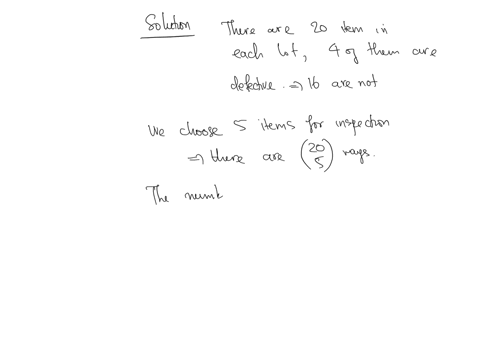 Solution There are 20 item in
each lot, 4 of them are
defective. ⇒ 16 are not
We choose 5 items for inspection
⇒ there are (20 5) ways.
The numb